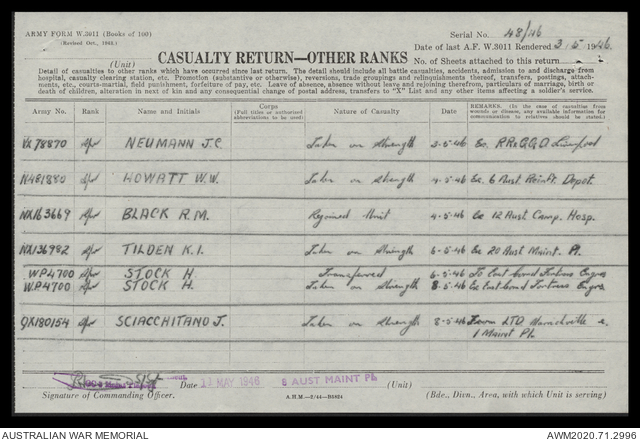 ARMY FORM W.3011 (Books of 100)
(Revised Oct., 1942.)
Serial No. 48/46
Date of last A.F. W.3011 Rendered 3.5.1946.
(Unit)
CASUALTY RETURN—OTHER RANKS
No. of Sheets attached to this return
Detail of casualties to other ranks which have occurred since last return. The detail should include all battle casualties, accidents, admission to and discharge from
hospital, casualty clearing station, etc. Promotion (substantive or otherwise), reversions, trade groupings and relinquishments thereof, transfers, postings, attach-
ments, etc., courts-martial, field punishment, forfeiture of pay, etc. Leave of absence, absence without leave and rejoining therefrom, particulars of marriage, birth or
death of children, alteration in next of kin and any consequential change of postal address, transfers to "X" List and any other items affecting a soldier's service.
Army No. Rank Name and Initials Corps (Full titles or authorized abbreviations to be used) Nature of Casualty Date REMARKS. (In the case of casualties from wounds or disease, any available information for communication to relatives should be stated.)
VX78870 Spr NEUMANN J.C. Taken on Strength 3-5-46 Ex.
N481880 Spr HOWATT W.W. Taken on Strength 4-5-46 Ex. 6 Aust Reinft. Depot.
NX163669 Spr BLACK R.M. Rejoined Unit 4-5-46 Ex 12 Aust Camp. Hosp.
NX136982 Spr TILDEN K.I. Taken on Strength 6-5-46 Ex 20 Aust Maint. Pl.
WP4700 Spr STOCK H. Transferred 6-5-46 To East Comd Fortress Engrs
WP4700 Spr STOCK H. Taken on Strength 8-5-46 Ex East Comd Fortress Engrs
QX180154 Spr SCIACCHITANO J. Taken on Strength 8-5-46 From LTD Marrickville
1 Maint Pl.
Signature of Commanding Officer.
Date 13 MAY 1946 8 AUST MAINT Pl (Unit)
A.H.M.—2/44—D5824
(Bde., Divn., Area, with which Unit is serving)
AUSTRALIAN WAR MEMORIAL
AWM2020.71.2996